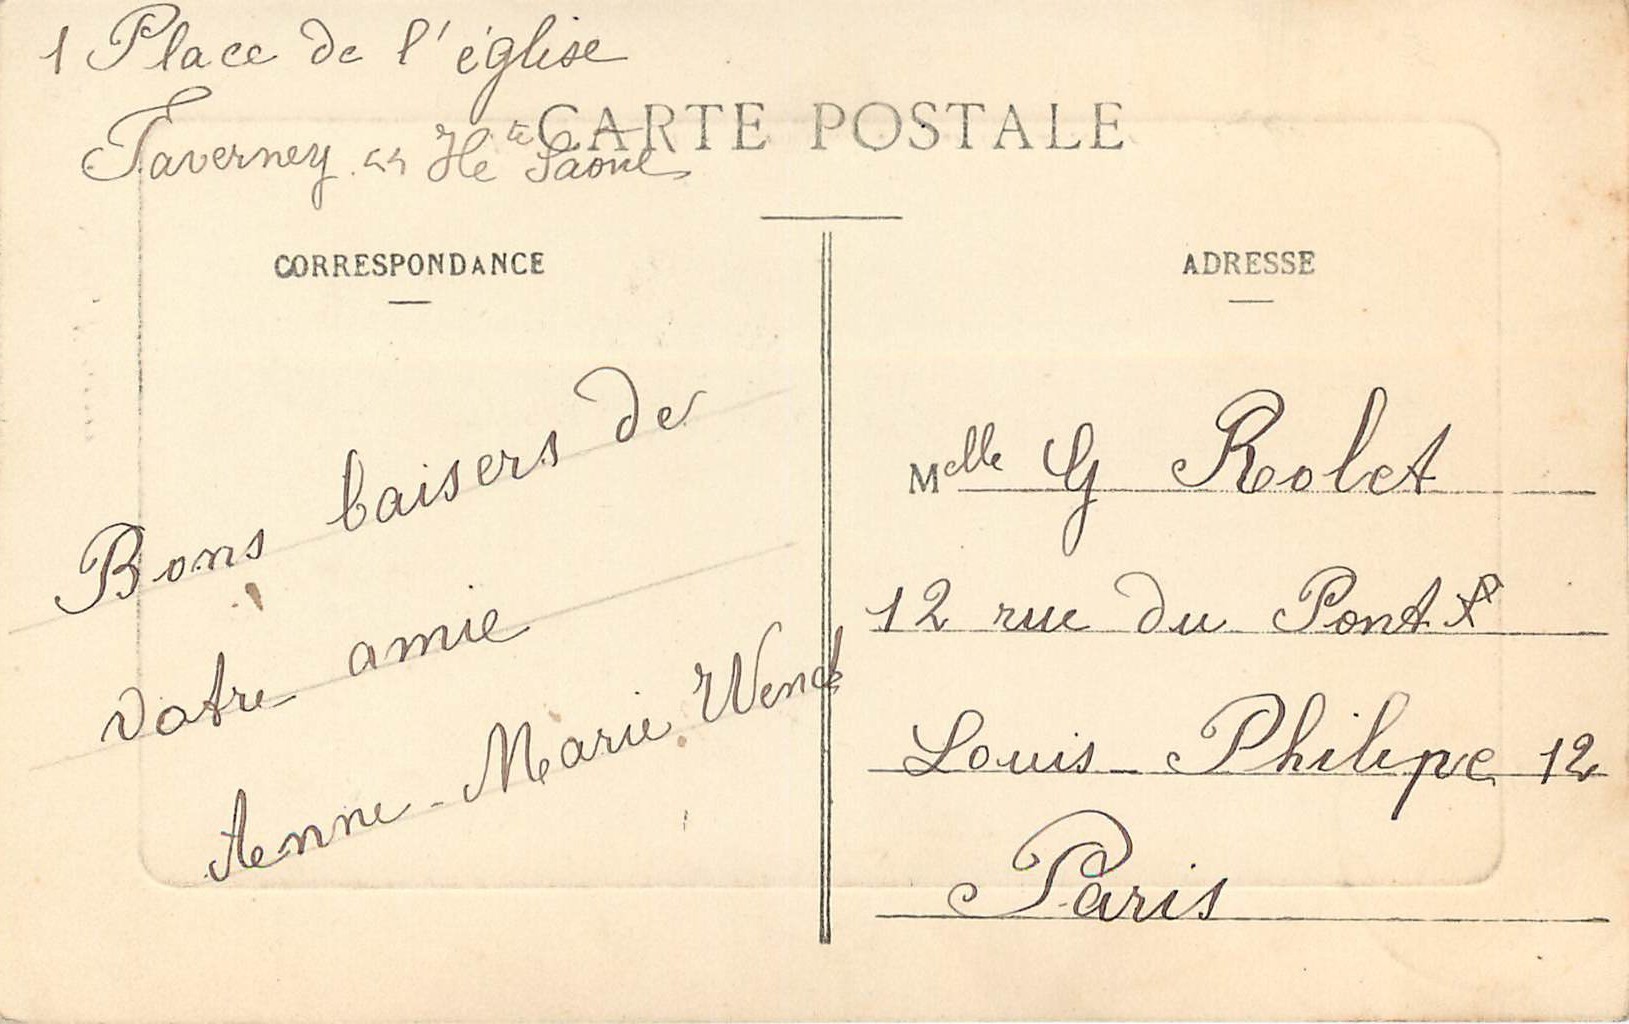 1 Place de l'église
Faverney Hte Saone
CARTE POSTALE
CORRESPONDANCE
Bons baisers de
votre amie
Anne-Marie Wenck
ADRESSE
Melle G Rolet
12 rue du Pont
Louis-Philipe 12
Paris